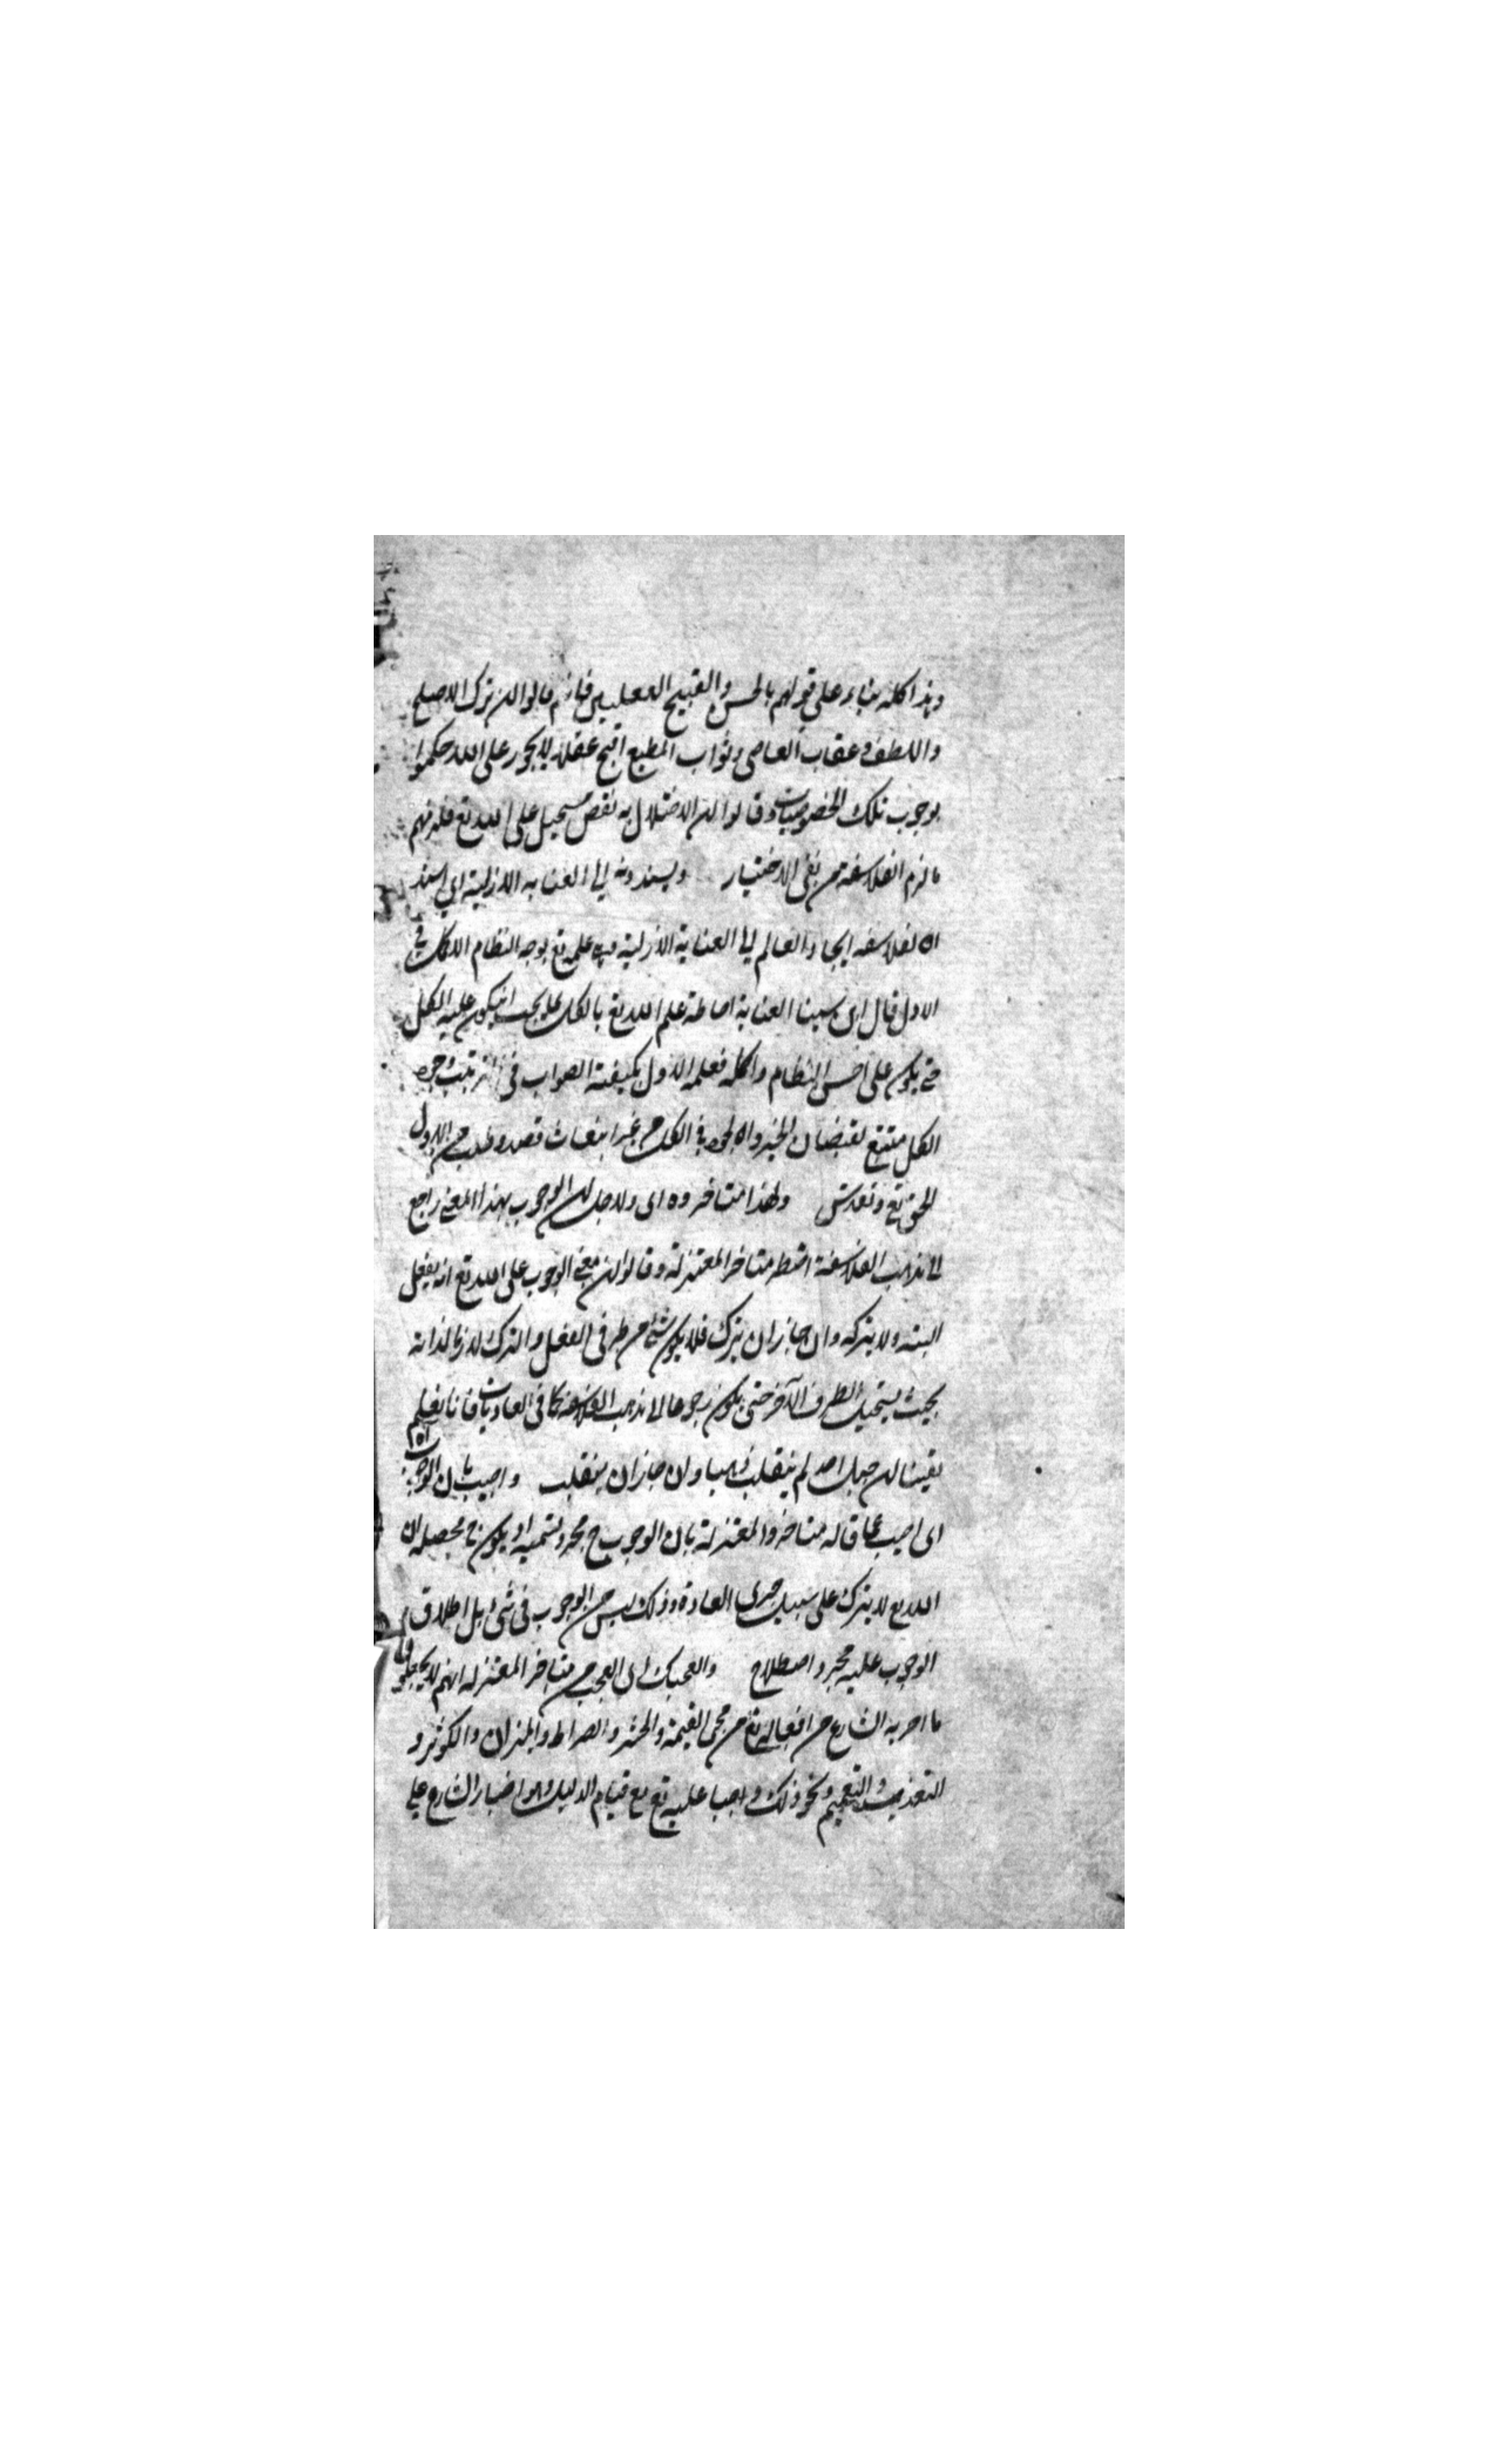 وهذا كله بناء على قولهم بالحسن والقبيح العقليين فانهم قالوا ان ترك الاصلح
واللطف وعقاب العاصى وثواب المطيع اقبح عقلا لا يجوز على الله حكموا
بوجوب تلك الخصوصيات وقالوا ان الاخلال به نقص مستحيل على الله تع فلزمهم
ما لزم الفلاسفة من نفى الاختيار ويسندونه الى العنايه الازلية اى اسند
الفلاسفه ايجاد العالم الى العناية الازلية وهى علمه تع بوجه النظام الاكمل فى
الاول قال ابن سينا العناية احاطة علم الله تع بالكل بما يجب ان يكون عليه الكل
حتى يكون على احسن النظام واكمله فعلمه الاول بكيفية الصواب فى ترتيب وجود
الكل منبع لفيضان الخير والجود فى الكل من غير انبعاث قصد وطلب من الاول
الحق تع وتقدس ولهذا متاخروه اى ولاجل ان الوجوب بهذا المعنى راجع
الى مذهب الفلاسفة اضطر متاخر المعتزلة وقالوا ان معنى الوجوب على الله تع انه يفعل
البته ولا يتركه وان جاز ان يترك فلا يكون شئ من طرفى الفعل والترك لازما لذاته
بحيث يستحيل الطرف الآخر حتى يكون رجوعا الى مذهب الفلاسفه كما فى العاديات فانا نعلم
يقينا ان جبل احد لم ينقلب ذهبا وان جاز ان ينقلب واجيب بان الوجوب
اى اجيب عما قاله متاخروا المعتزلة بان الوجوب ح مجرد تسميه اذ يكون ح محصله ان
الله تع لا يترك على سبيل جرى العادة وذلك ليس من الوجوب فى شئ بل اطلاق
الوجوب عليه مجرد اصطلاح والعجب اى العجب من متاخر المعتزله انهم لا يجعلون
ما اخبر به الشارع من افعاله تع من مجئ القيمة والحشر والصراط والميزان والكوثر و
التعذيب والتنعيم ونحو ذلك واجبا عليه تع مع قيام الدليل وهو اخبار الشارع على